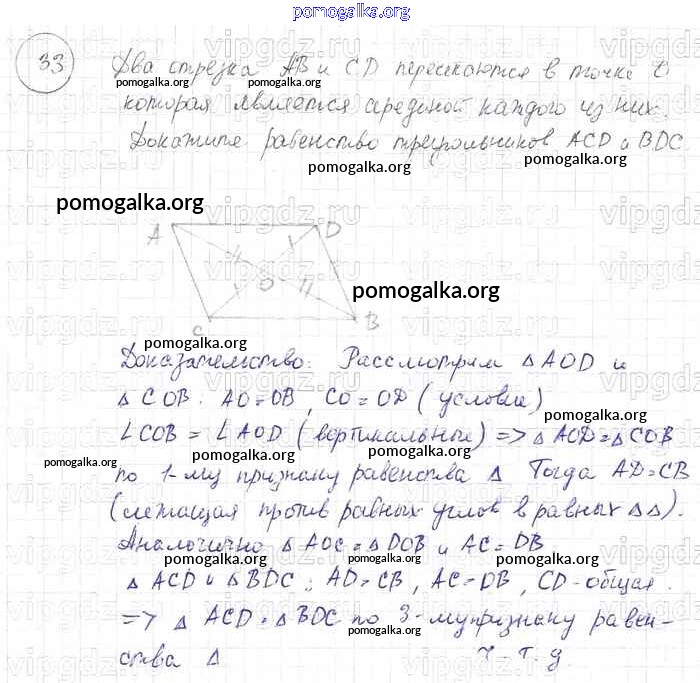 pomogalka.org
33 Два отрезка AB и CD пересекаются в точке O
pomogalka.org pomogalka.org
которая является срединой каждого из них.
Докажите равенство треугольников ACD и BDC
pomogalka.org pomogalka.org
pomogalka.org
A D
O
pomogalka.org
C B
pomogalka.org
Доказательство: Рассмотрим △ AOD и
△ COB. AO=OB, CO=OD (условие)
pomogalka.org
∠COB = ∠AOD (вертикальные) => △ AOD=△COB
pomogalka.org pomogalka.org pomogalka.org
по 1-му признаку равенства △ Тогда AD=CB
(лежащая против равных углов в равных △△).
Аналогично △ AOC=△DOB и AC=DB
pomogalka.org
△ ACD и △BDC: AD=CB, AC=DB, CD-общая.
pomogalka.org
=> △ ACD=△BDC по 3-му признаку равен-
pomogalka.org
ства △ ч.т.д.
pomogalka.org
vipgdz.ru